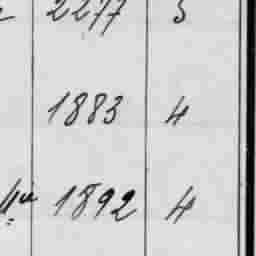 2277 5
1883 4
1892 4